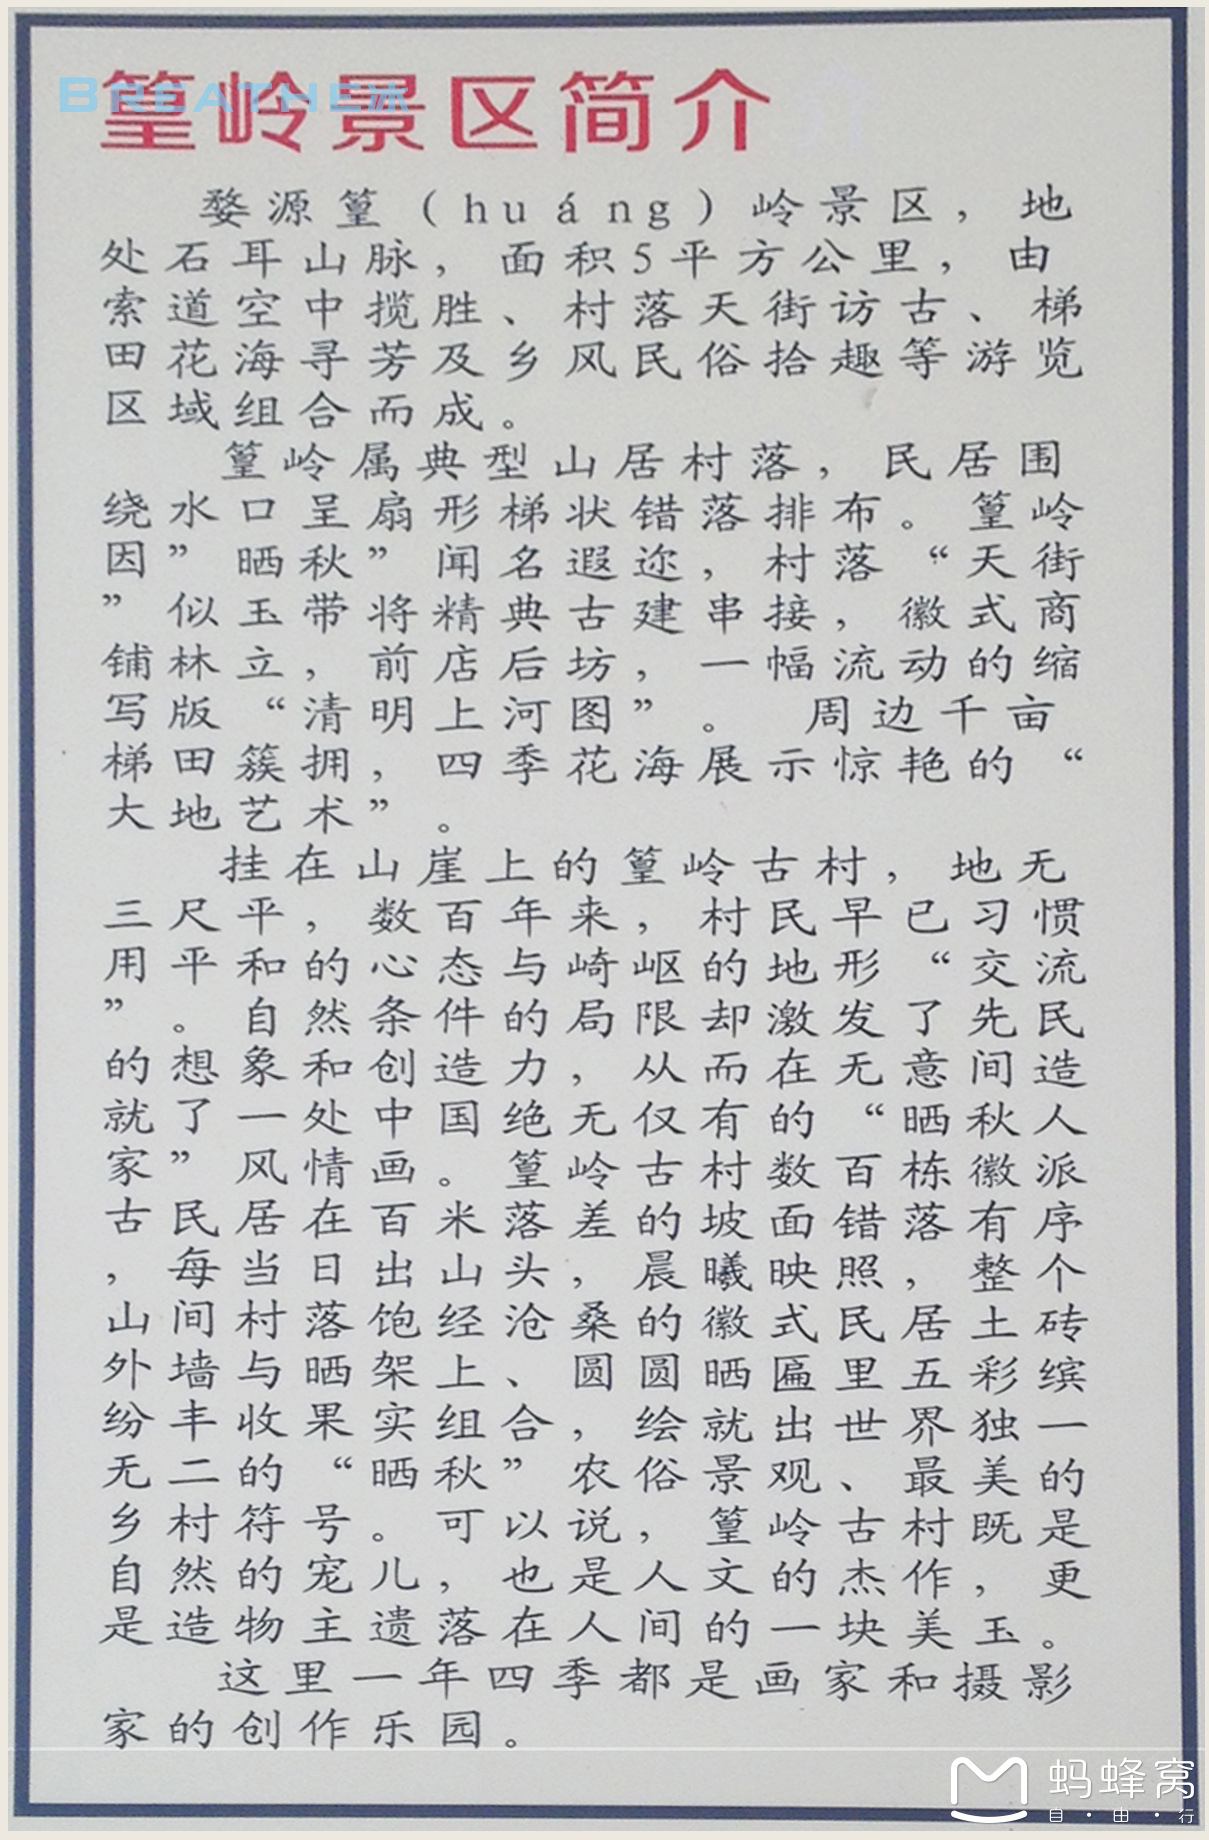 BREATHE冰
篁岭景区简介
婺源篁（huáng）岭景区，地
处石耳山脉，面积5平方公里，由
索道空中揽胜、村落天街访古、梯
田花海寻芳及乡风民俗拾趣等游览
区域组合而成。
篁岭属典型山居村落，民居围
绕水口呈扇形梯状错落排布。篁岭
因”晒秋”闻名遐迩，村落“天街
”似玉带将精典古建串接，徽式商
铺林立，前店后坊，一幅流动的缩
写版“清明上河图”。 周边千亩
梯田簇拥，四季花海展示惊艳的“
大地艺术”。
挂在山崖上的篁岭古村，地无
三尺平，数百年来，村民早已习惯
用平和的心态与崎岖的地形“交流
”。自然条件的局限却激发了先民
的想象和创造力，从而在无意间造
就了一处中国绝无仅有的“晒秋人
家”风情画。篁岭古村数百栋徽派
古民居在百米落差的坡面错落有序
，每当日出山头，晨曦映照，整个
山间村落饱经沧桑的徽式民居土砖
外墙与晒架上、圆圆晒匾里五彩缤
纷丰收果实组合，绘就出世界独一
无二的“晒秋”农俗景观、最美的
乡村符号。可以说，篁岭古村既是
自然的宠儿，也是人文的杰作，更
是造物主遗落在人间的一块美玉。
这里一年四季都是画家和摄影
家的创作乐园。
蚂蜂窝
自·由·行